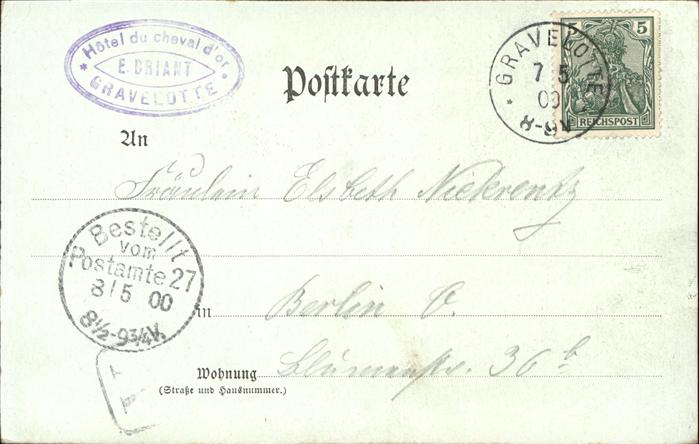 Hôtel du cheval d'or
E. BRIANT
GRAVELOTTE
Postkarte
GRAVELOTTE
7 5
00
5
REICHSPOST
An
Fräulein Elsbeth Niekrentz
Bestellt
vom
Postamte 27
8/5 00
8½-9¾V.
in Berlin O.
Wohnung Blumenstr. 36b
(Straße und Hausnummer.)